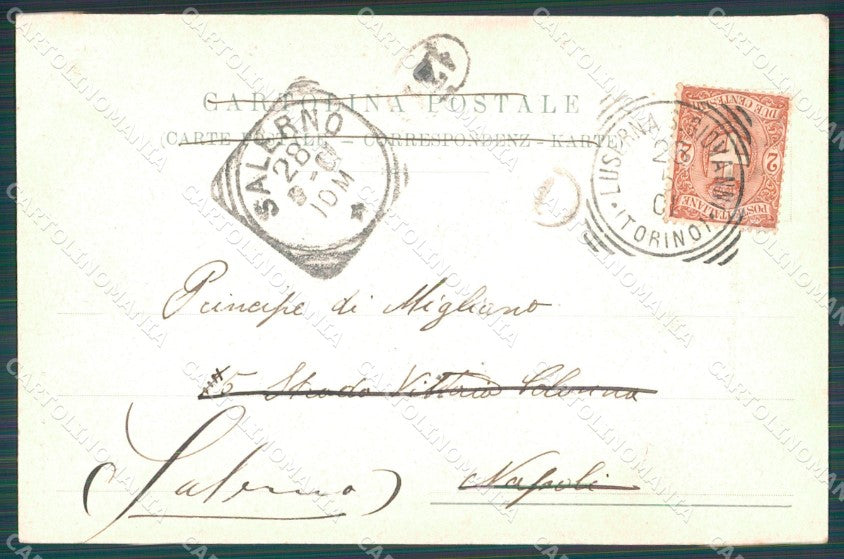 CARTOLINA POSTALE
(CARTE POSTALE - CORRESPONDENZ - KARTE)
SALERNO
28
10M
LUSERNA S. GIOVANNI
(TORINO)
POSTE ITALIANE
DUE CENT
2
2
Principe di Migliano
15 Strada Vittoria Colonna
Napoli
(Salerno)
CARTOLINOMANIA